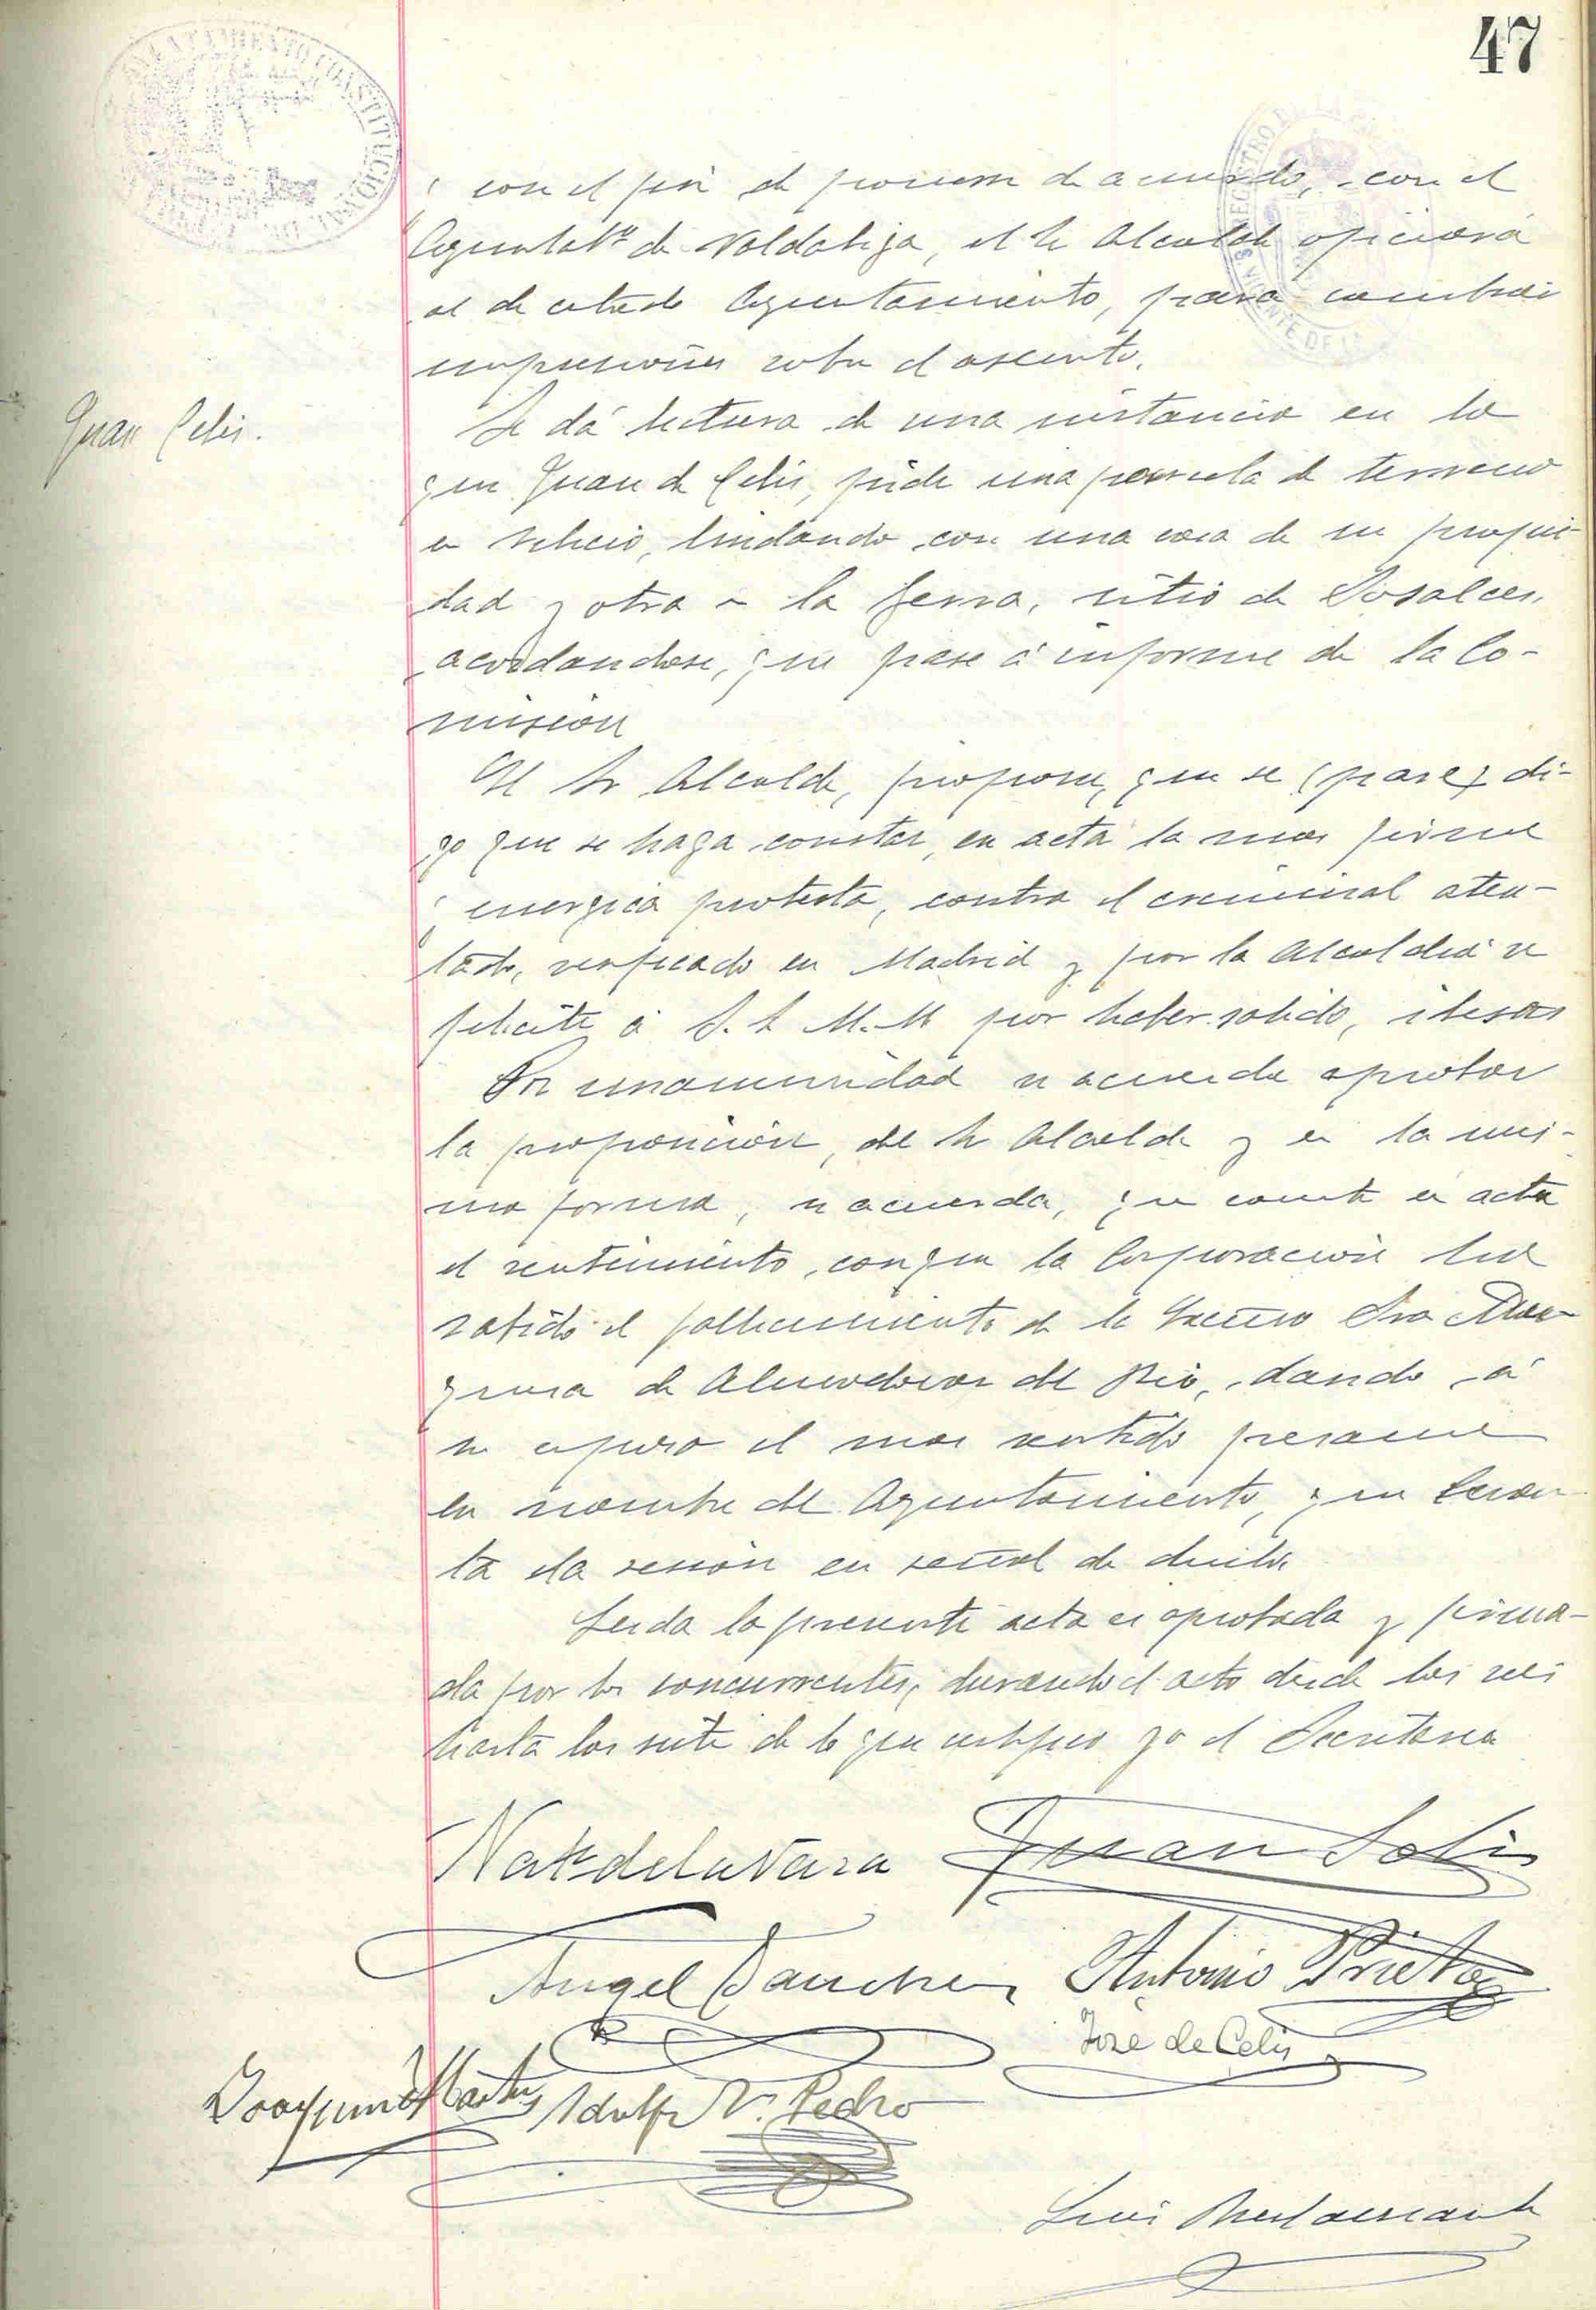 47
AYUNTAMIENTO CONSTITUCIONAL DE
REGISTRO DE LA
VICENTE DE L
y con el fin de proceder de acuerdo, con el
Ayuntatº de Valdaliga, el Sr Alcalde oficiará
al de citado Ayuntamiento, para cambiar
impresiones sobre el asunto.
Juan Celis.
Se dá lectura de una instancia en la
que Juan de Celis, pide una parcela de terreno
en lindando con una casa de su propie-
dad y otra a la sitio de
acordandose, que pase á informe de la Co-
mision
El Sr Alcalde, propone, que se (pase) di-
go que se haga constar, en acta la mas firme
y energica protesta, contra el criminal aten-
tado, verificado en Madrid y por la Alcaldia se
felicite á S. S. M. M por haber salido, ilesos
Por unanimidad se acuerda aprobar
la proposicion, del Sr Alcalde y en la mis-
ma forma, se acuerda, que conste en acta
el sentimiento, con que la Corporacion ha
sabido el fallecimiento de la Excma Sra Mar
quesa de del Rio, dando á
su esposo el mas sentido pesame
en nombre del Ayuntamiento, que levan
ta la sesion en señal de duelo
Leida la presente acta es aprobada y firma-
da por los concurrentes, durando el acto desde las seis
hasta las siete de lo que certifico yo el Secretario
Nat. de la Vara Juan Celis
Angel Sanchez Antonio Prieto
José de Celis
Joaquin Adolfo V. Pedro
Luis